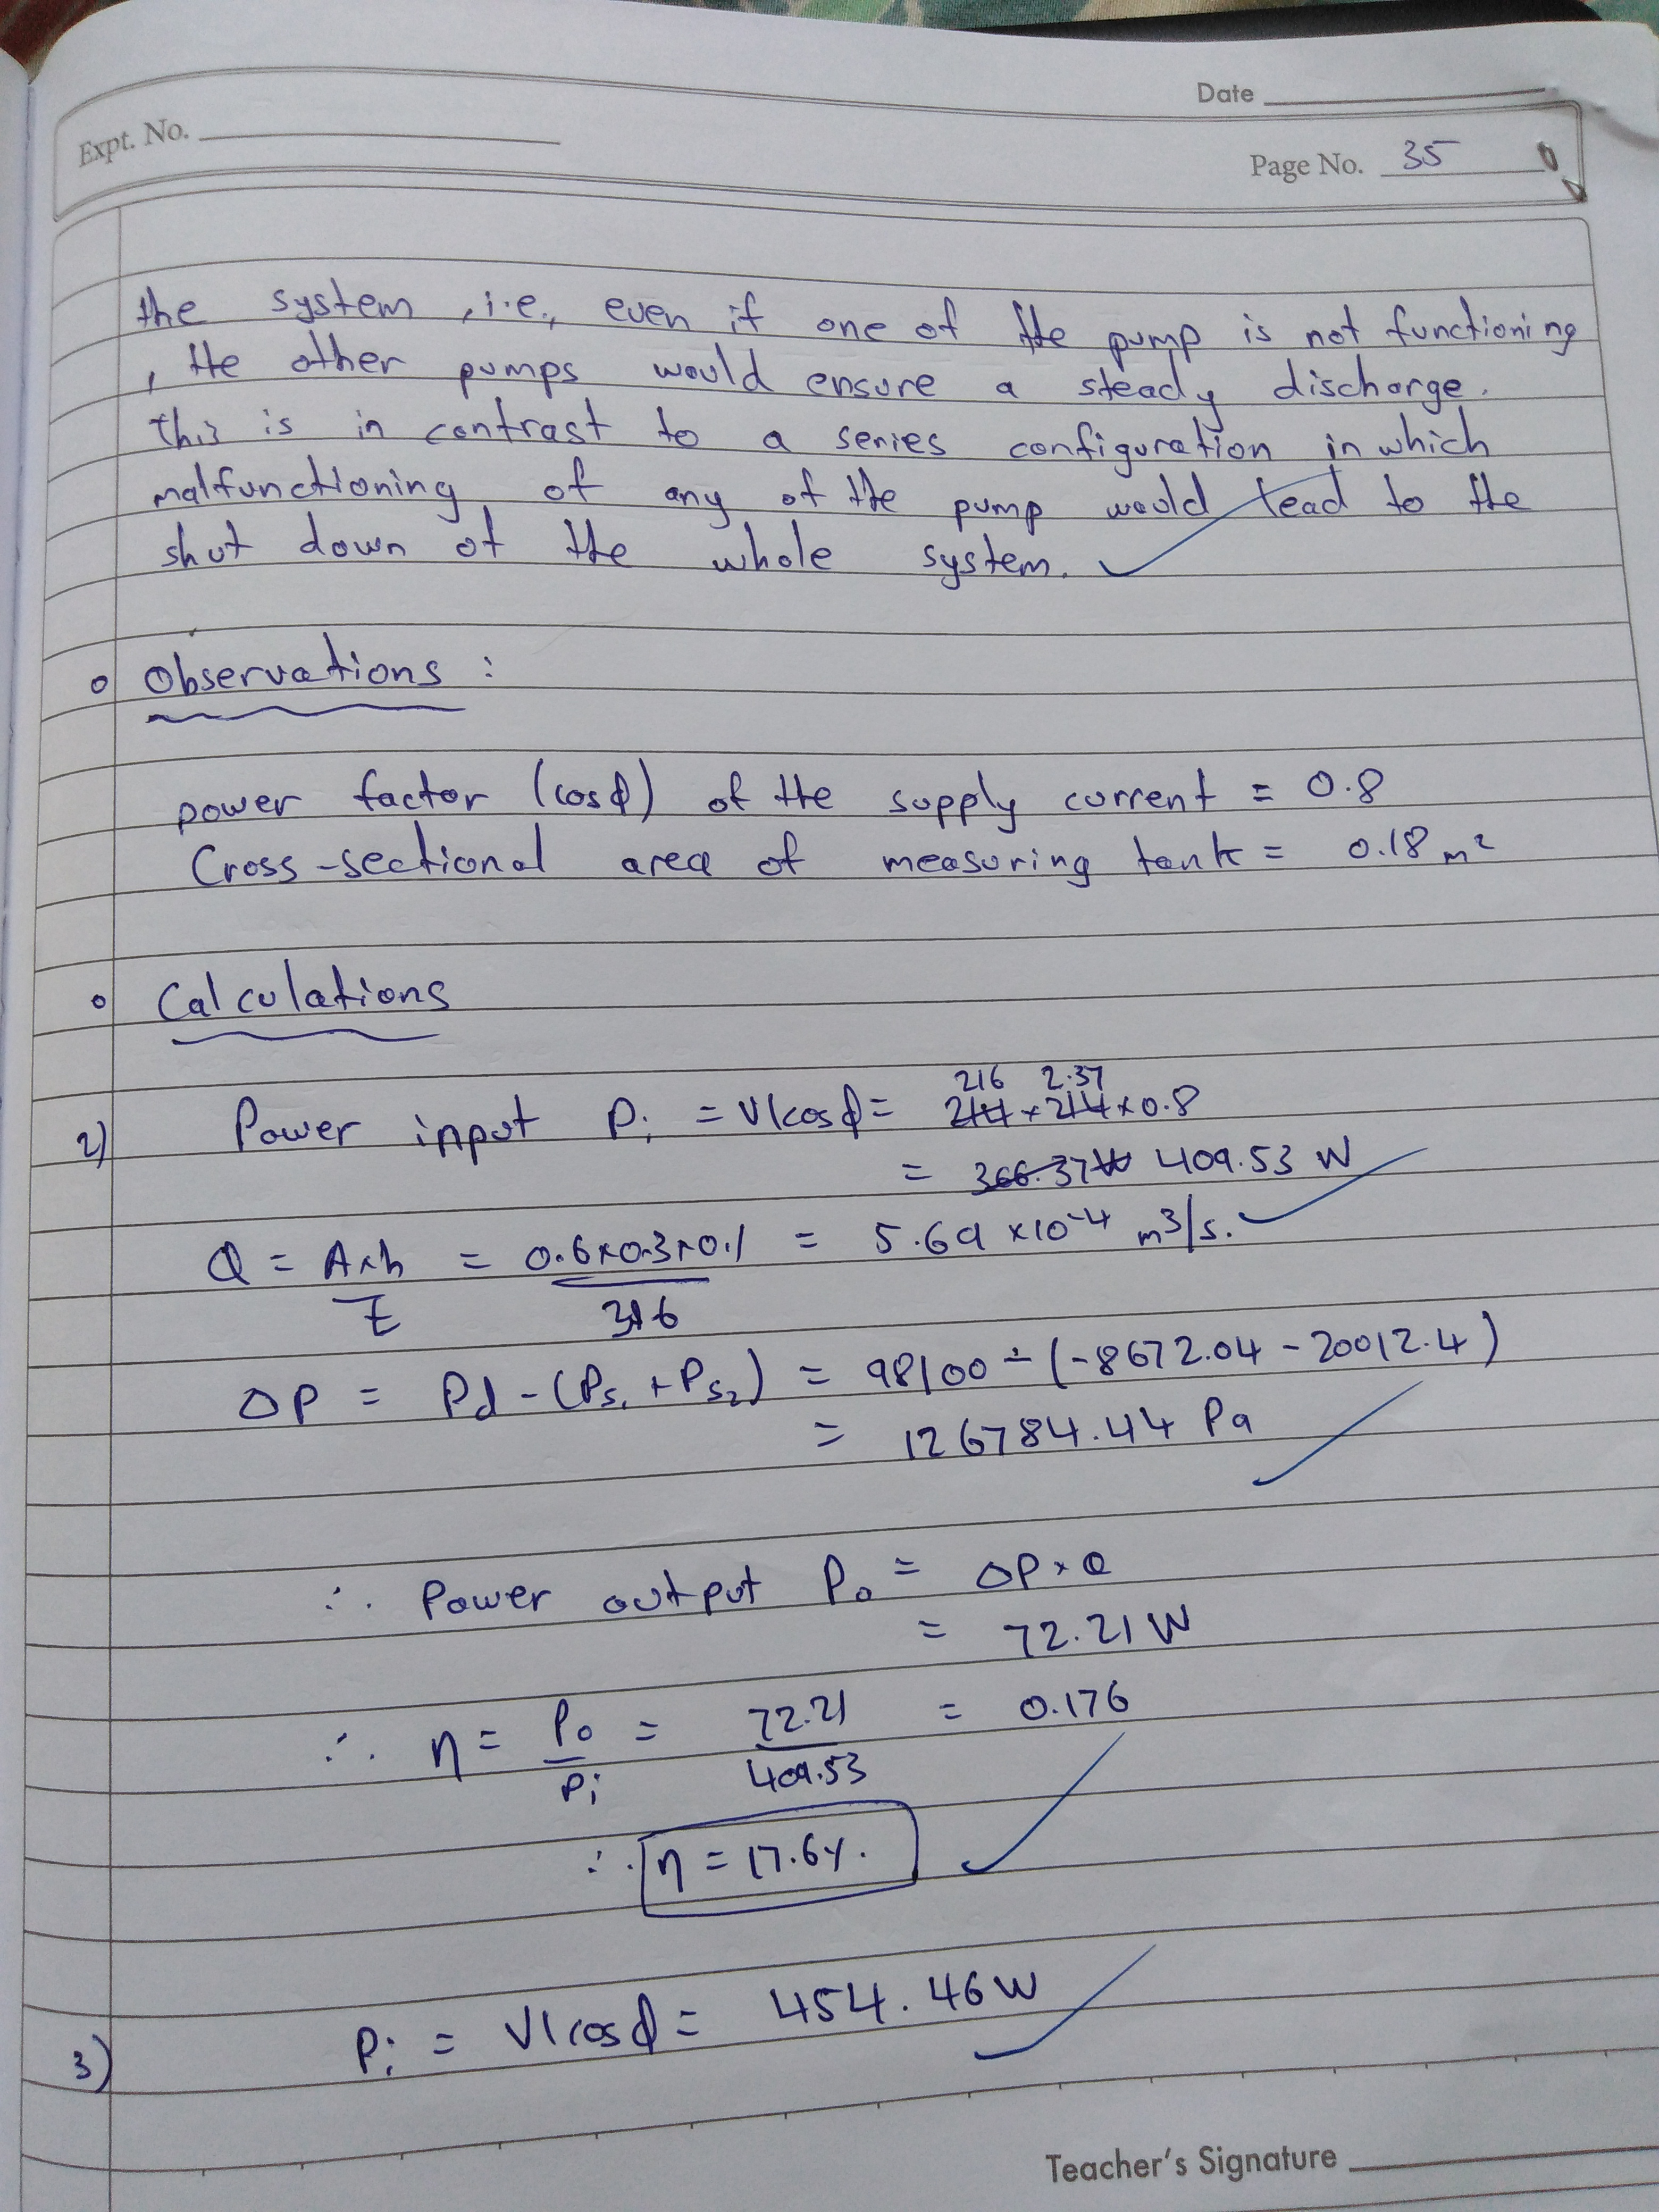 Date
Expt. No.
Page No. 35
the system, i.e., even if one of the pump is not functioning
, the other pumps would ensure a steady discharge.
this is in contrast to a series configuration in which
malfunctioning of any of the pump would lead to the
shut down of the whole system.
Observations :
power factor (cosϕ) of the supply current = 0.8
Cross-sectional area of measuring tank = 0.18 m²
Calculations
216 2.37
2) Power input Pi = VIcosϕ = 214 × 214 × 0.8
= 366.37W 409.53 W
Q = A×h = 0.6×0.3×0.1 = 5.69 ×10⁻⁴ m³/s.
t 316
ΔP = Pd - (Ps₁ + Ps₂) = 98100 - (-8672.04 - 20012.4)
= 126784.44 Pa
∴ Power output Po = ΔP × Q
= 72.21 W
∴ η = Po = 72.21 = 0.176
Pi 409.53
∴ η = 17.6%.
3) Pi = VIcosϕ = 454.46 W
Teacher's Signature